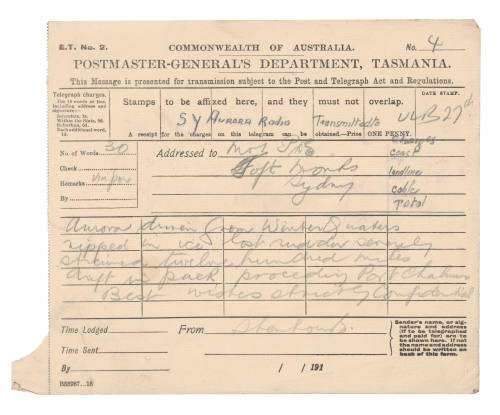 E.T. No. 2.
COMMONWEALTH OF AUSTRALIA.
No. 4
POSTMASTER-GENERAL'S DEPARTMENT, TASMANIA.
This Message is presented for transmission subject to the Post and Telegraph Act and Regulations.
Telegraph charges.
Stamps to be affixed here, and they must not overlap.
DATE STAMP.
SY Aurora Radio Transmitted to
27th
A receipt for the charges on this telegram can be obtained.—Price ONE PENNY.
No. of Words 30
Addressed to
Charges
Check
coast
Remarks
landline
Sydney
cable
By
Total
Aurora driven from Winter Quarters
nipped in ice lost rudder severely
strained twelve hundred miles
drift in pack proceeding Port Chalmers
Best wishes strictly Confidential
Time Lodged
From
Stenhouse
Sender's name, or signature and address (if to be telegraphed and paid for) are to be shown here. If not the name and address should be written on back of this form.
Time Sent
By
/ / 191